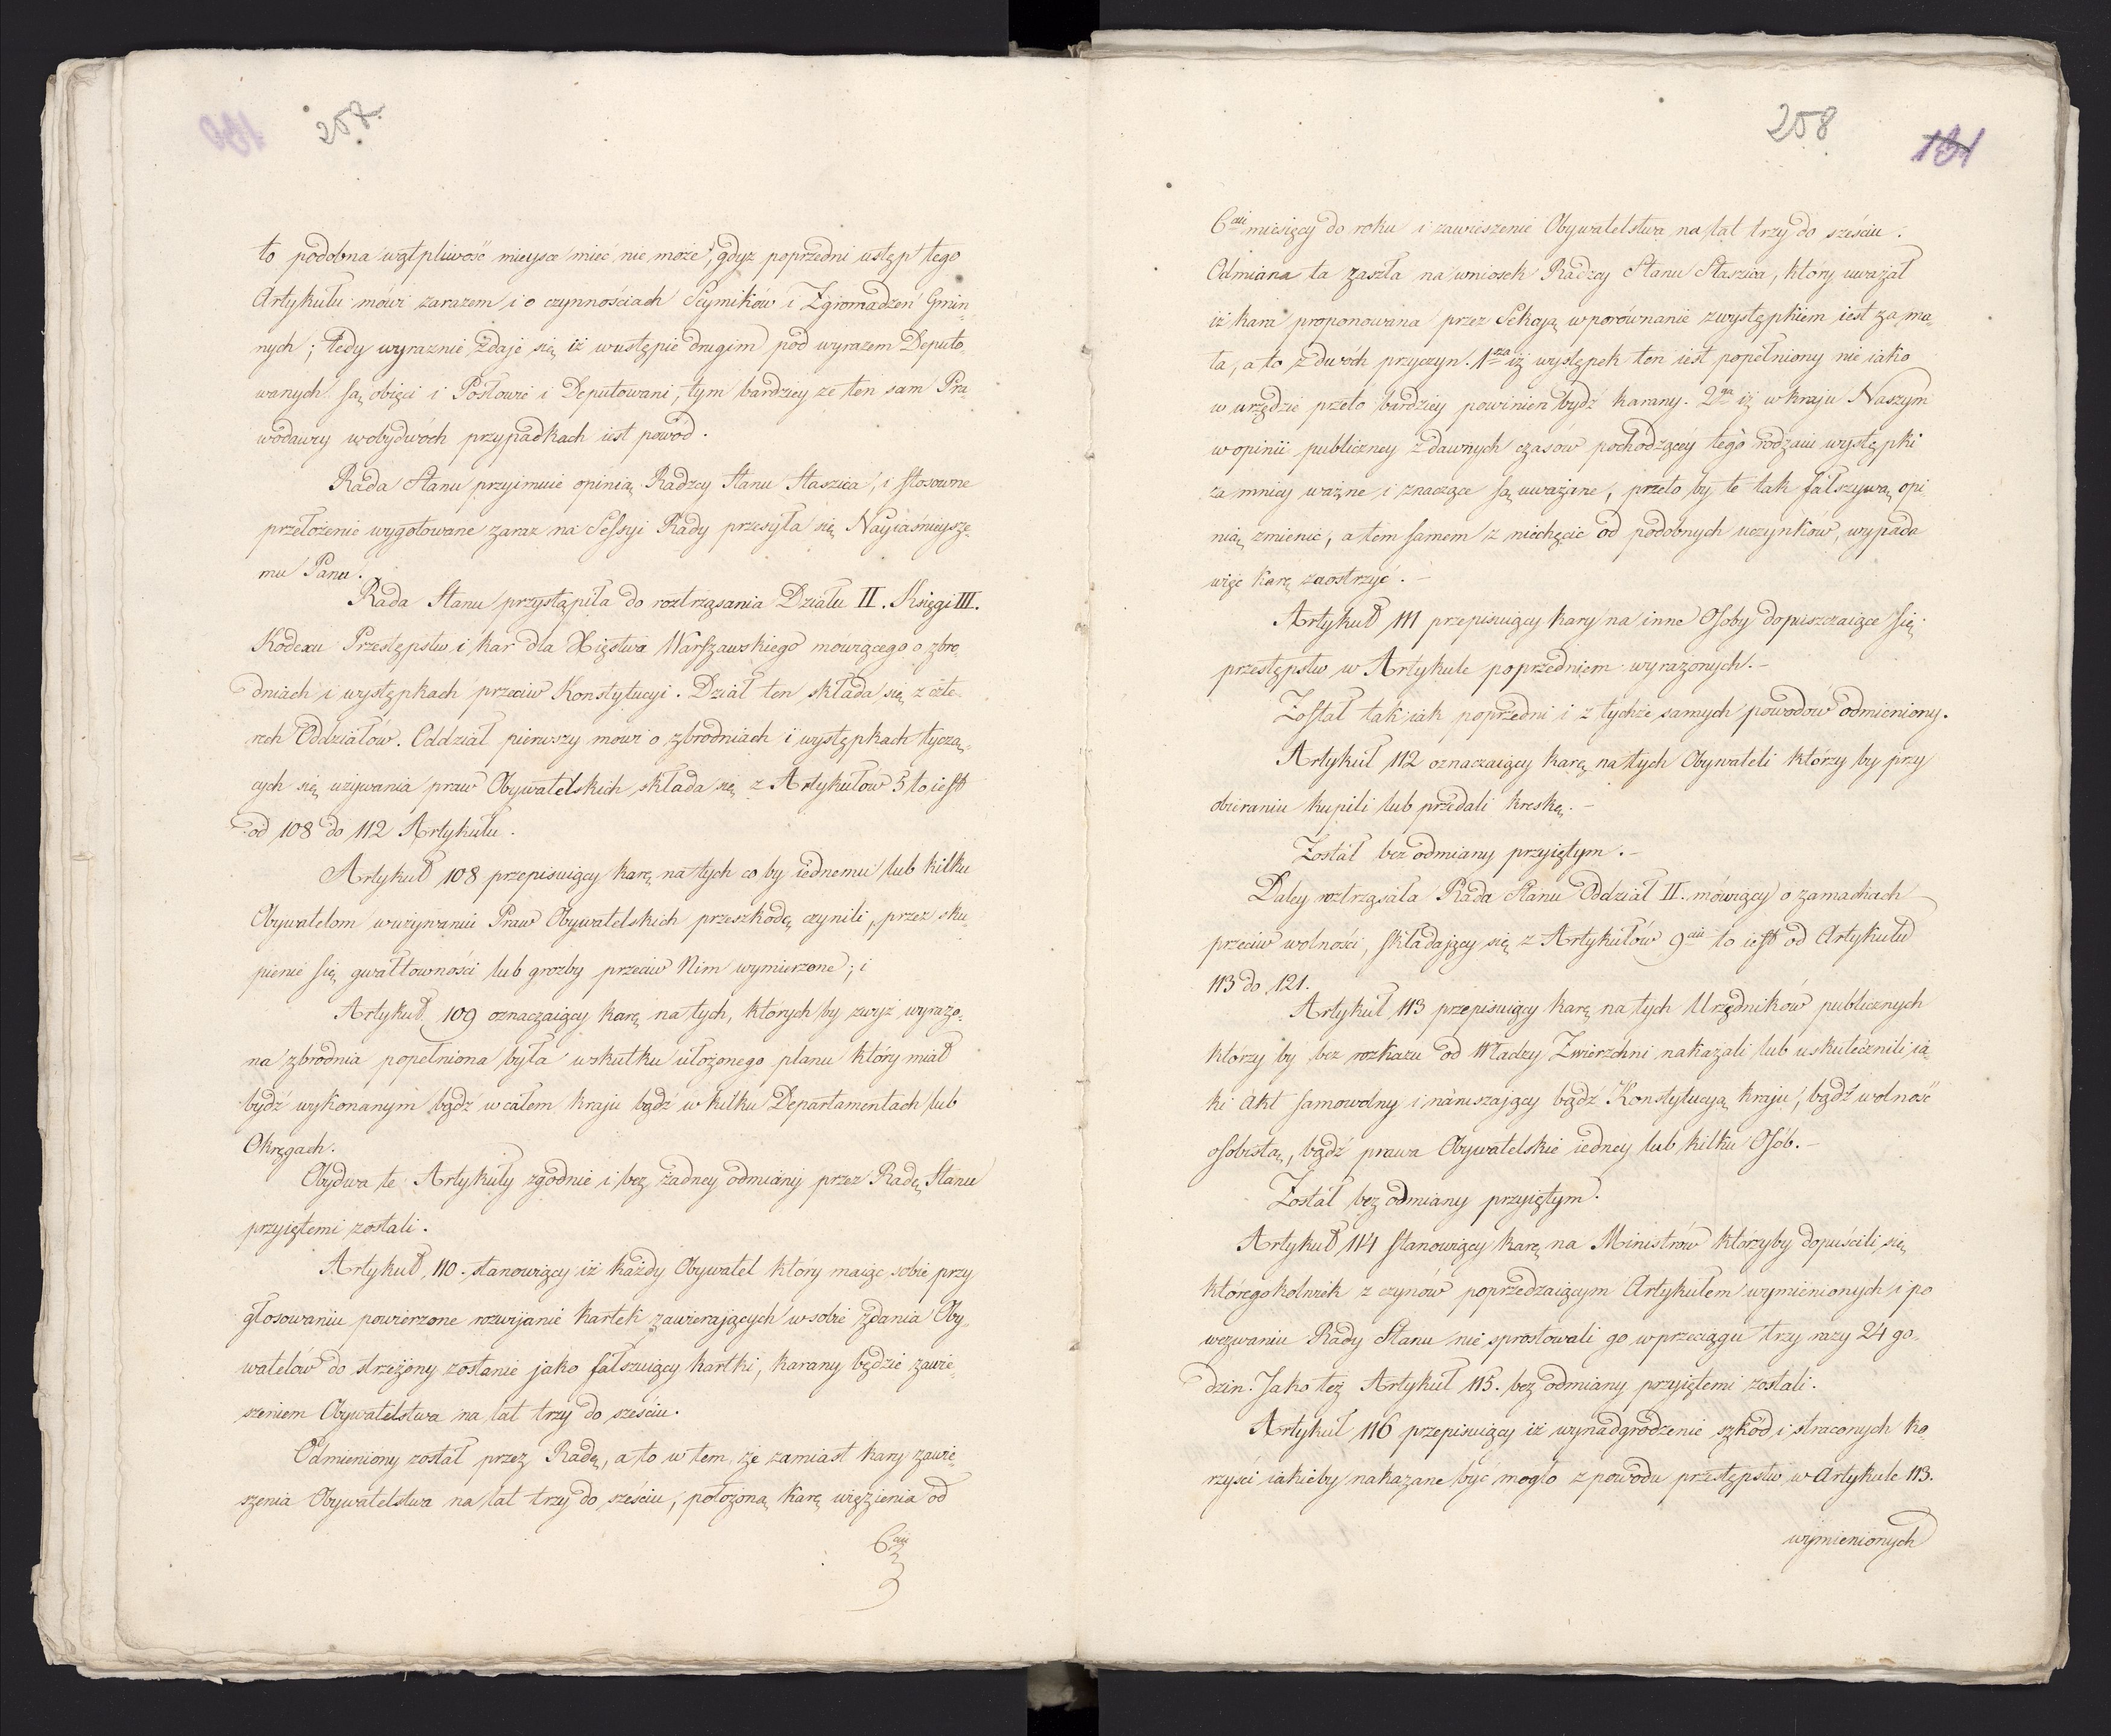 258.
to podobna wątpliwość mieysca mieć nie może, gdyż poprzedni ustęp tego
Artykułu mówi zarazem i o czynnościach Seymików i Zgromadzeń Gmin„
nych; tedy wyraznie zdaje się iż w ustępie drugim pod wyrazem Deputo
wanych są obięci i Posłowie i Deputowani, tym bardziey ze ten sam Pra
wodawcy w obydwóch przypadkach iest powód.
Rada Stanu przyimuie opinią Radzcy Stanu Staszica, i stosowne
przełożenie wygotowane zaraz na Sessyi Rady przesyła się Nayiaśnieysze„
mu Panu.
Rada Stanu przystąpiła do roztrząsania Działu II. Księgi III.
Kodexu Przestępstw i kar dla Xięstwa Warszawskiego mówiącego o zbro„
dniach i występkach przeciw Konstytucyi. Dział ten składa się z czte„
rech Oddziałów. Oddział pierwszy mówi o zbrodniach i występkach tyczą„
cych się używania praw Obywatelskich składa się z Artykułów 5 to iest
od 108 do 112 Artykułu.
Artykuł 108 przepisuiący karę na tych co by iednemu lub kilku
Obywatelom w używaniu Praw Obywatelskich przeszkodę czynili, przez sku„
pienie się gwałtowności lub grozby przeciw Nim wymierzone; i
Artykuł 109 oznaczaiący karę na tych, których by zwyż wyrażo„
na zbrodnia popełniona była w skutku ułożonego planu który miał
bydź wykonanym bądź w całem kraju bądź w kilku Departamentach lub
Okręgach.
Obydwa te Artykuły zgodnie i bez żadney odmiany przez Radę Stanu
przyiętemi zostali.
Artykuł 110. stanowiący iż każdy Obywatel który maiąc sobie przy
głosowaniu powierzone rozwijanie kartek zawierających w sobie zdania Oby„
watelów do strzeżony zostanie jako fałszuiący kartki, karany będzie zawie„
szeniem Obywatelstwa na lat trzy do sześciu.
Odmieniony został przez Radę, a to w tem, że zamiast kary zawie„
szenia Obywatelstwa na lat trzy do sześciu, położoną karę więzienia od
6ciu
258
131
6ciu miesięcy do roku i zawieszenie Obywatelstwa na lat trzy do sześciu.
Odmiana ta zaszła na wniosek Radzcy Stanu Staszica, który uważał
iż kara proponowana przez Sekcyą w porównanie z występkiem iest za ma„
ła, a to z dwóch przyczyn. 1sza iż występek ten iest popełniony nie iako
w urzędzie przeto bardziey powinien bydź karany. 2ga iż w kraju Naszym
w opinii publiczney z dawnych czasów pochodzącéy tego rodzaiu występki
za mniey ważne i znaczące są uważane, przeto by te tak fałszywą opi
nią zmienić, a tem samem z niechęcic od podobnych uczynków, wypada
więc karę zaostrzyć. –
Artykuł 111 przepisuiący kary na inne Osoby dopuszczaiące się
przestępstw w Artykule poprzedniem wyrazonych. –
Został tak iak poprzedni i z tychże samych powodów odmieniony.
Artykuł 112 oznaczaiący karę na tych Obywateli którzy by przy
obieraniu kupili lub przedali kreskę. –
Został bez odmiany przyiętym. –
Daley roztrząsała Rada Stanu Oddział II. mówiący o zamachach
przeciw wolności, składający się z Artykułów 9ciu to iest od Artykułu
113 do 121.
Artykuł 113 przepisuiący karę na tych Urzędników publicznych
którzy by bez rozkazu od Władzy Zwierzchni nakazali lub uskutecznili ia„
ki akt samowolny i naruszający bądź Konstytucyą kraju, bądź wolność
osobistą, bądź prawa Obywatelskie iedney lub kilku Osób. –
Został bez odmiany przyiętym.
Artykuł 114 stanowiący karę na Ministrów którzyby dopuścili się
któregokolwiek z czynów poprzedzaiącym Artykułem wymienionych i po
wezwaniu Rady Stanu nie sprostowali go w przeciągu trzy razy 24 go„
dzin. Jako też Artykuł 115. bez odmiany przyiętemi zostali.
Artykuł 116 przepisuiący iż wynadgrodzenie szkód i straconych ko„
rzyści iakieby nakazane być mogło z powodu przestępstw w Artykule 113.
wymienionych